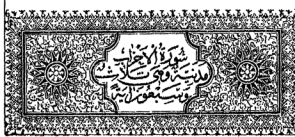 سورة الاحزاب
مدنية وهي ثلاث
وسبعون اية